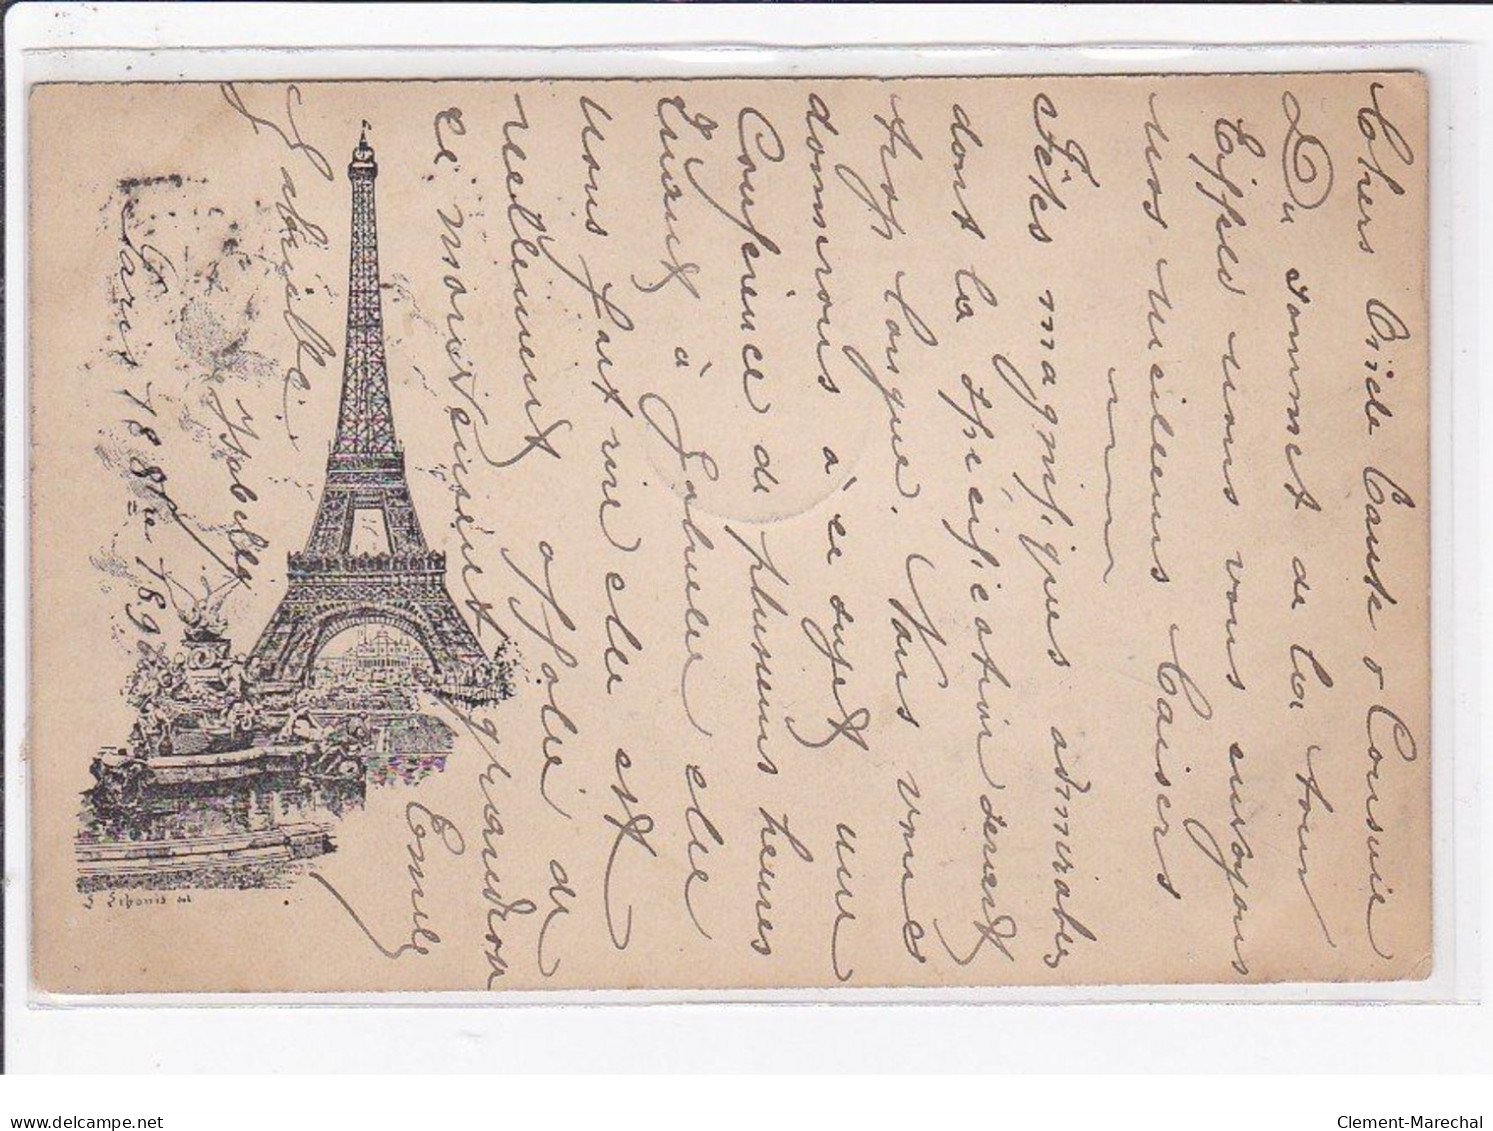 Chers Oncle Tante & Cousine
Du sommet de la tour
Eiffel nous vous envoyons
nos meilleurs baisers
Fêtes magnifiques admirables
dont la spécification serait
trop longue. Nous vous
donnerons à ce sujet une
Conférence de plusieurs heures
Quant à Gabrielle elle
nous fait rire elle est
réellement affolée de
ce mouvement grandiose
Emile
Gabrielle
Isabelle
Paris 18 8bre 189
delcampe.net
Clement-Marechal